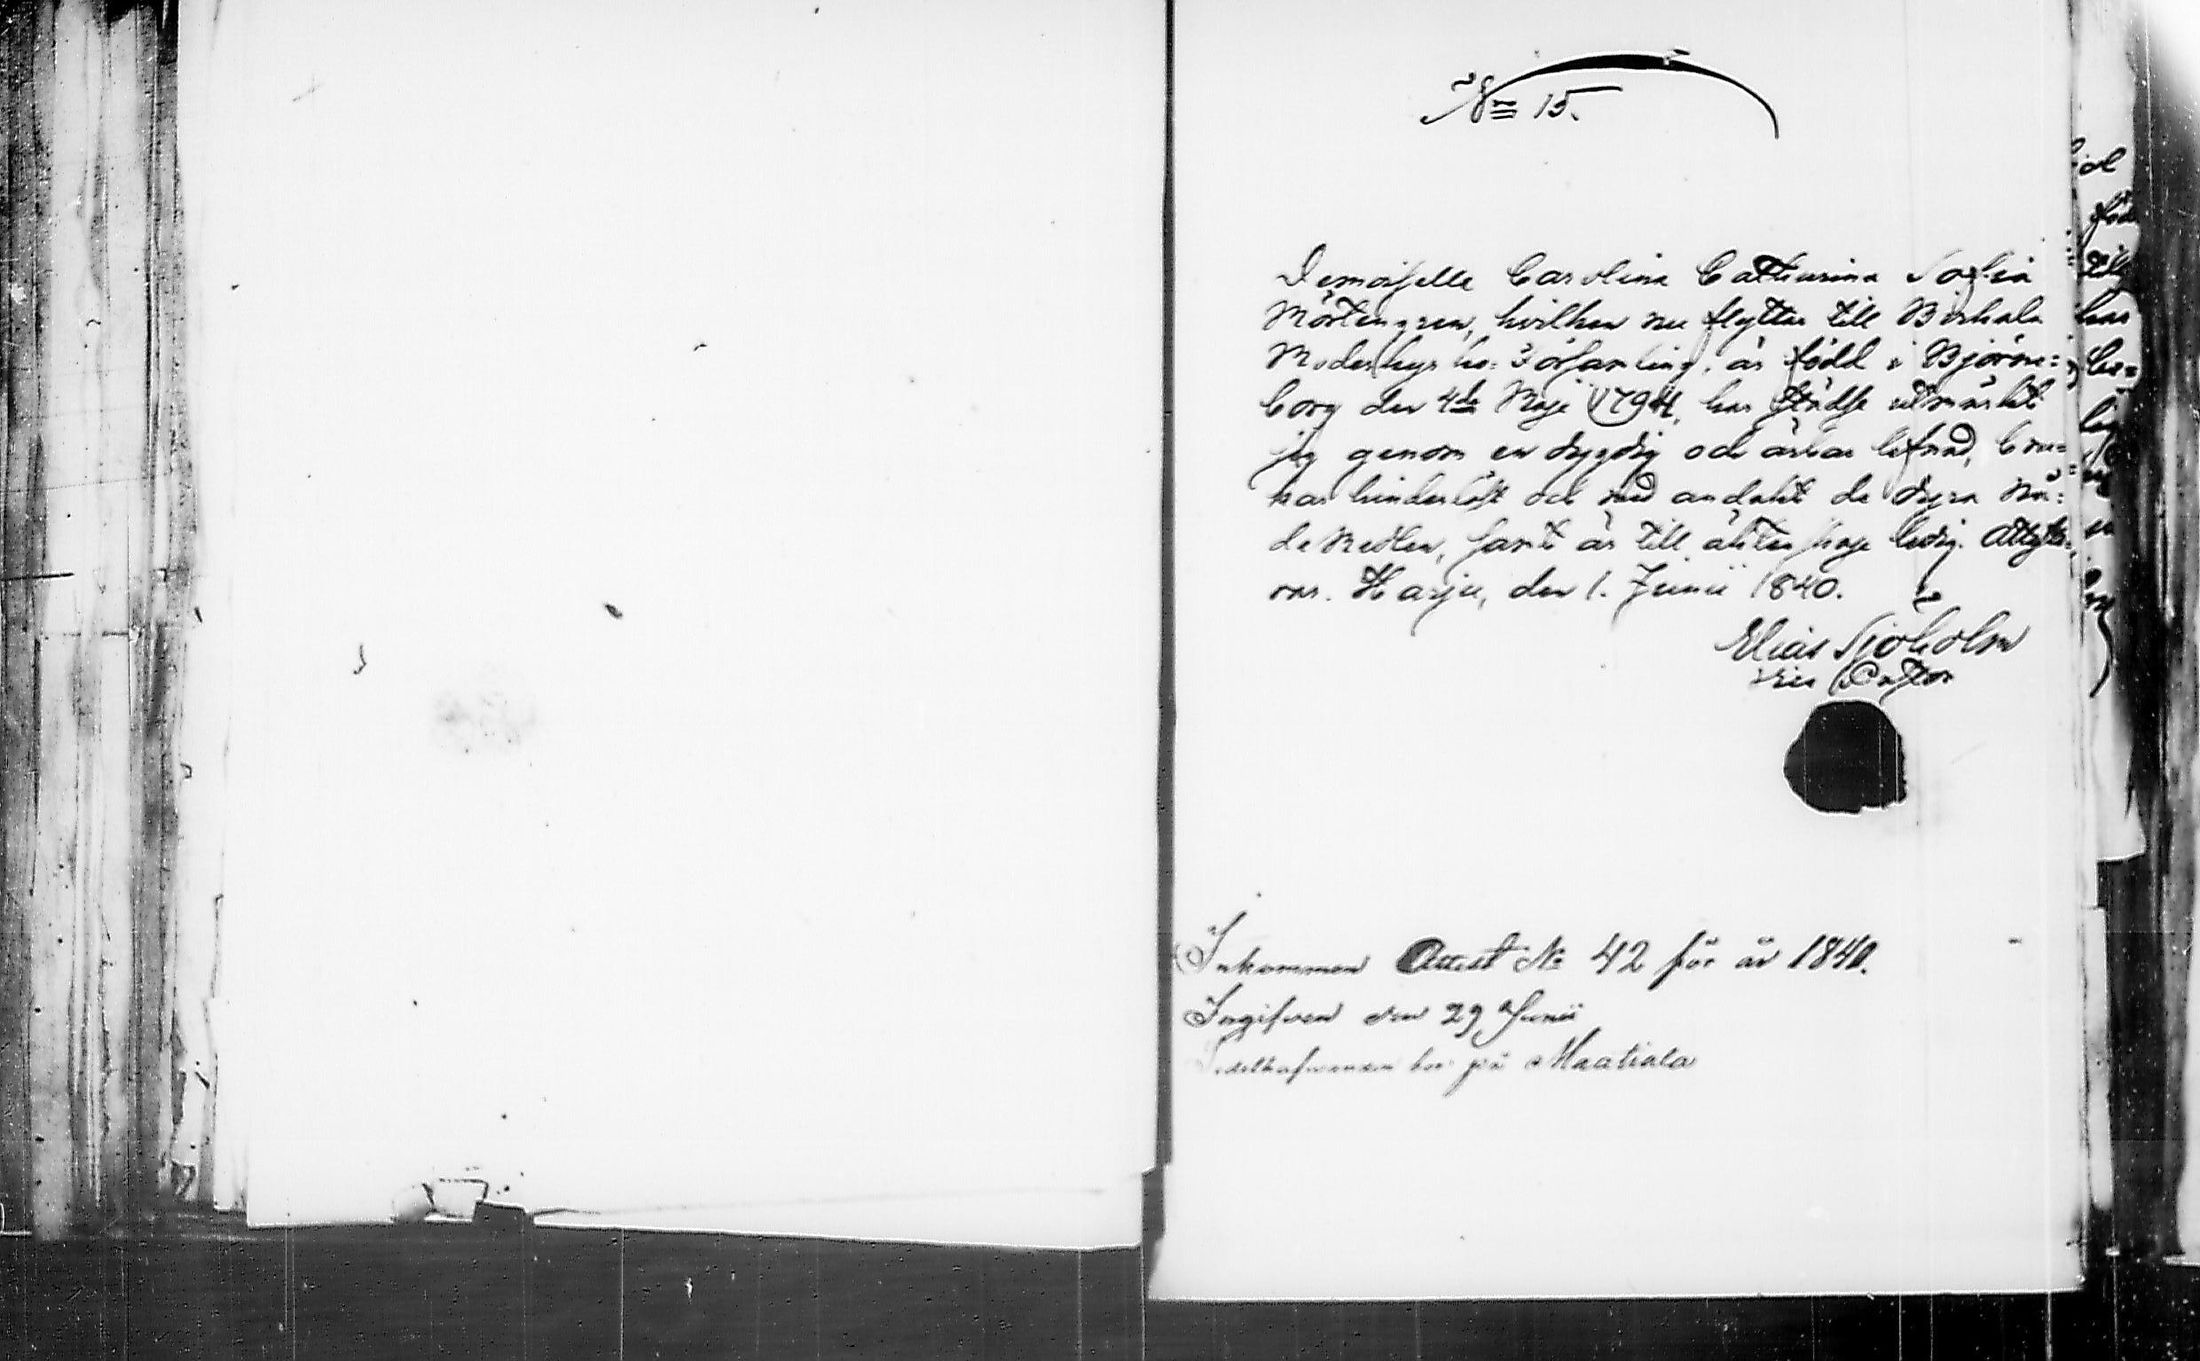 No 15.
Demoiselle Carolina Catharina Sofia
Mörtengren, hvilken nu flyttar till Birkala
Moderkyrko-Församling, är född i Björne=
borg den 4de Maji 1794, har städse utmärkt
sig genom en dygdig och ärbar lefnad, bru=
kar hinderlöst och med andakt de dyra Nå=
de Medlen, samt är till äktenskap ledig. Attest=
ras. Harju, den 1. Junii 1840.
Elias Sjöholm
Vice Pastor
Inkommen Attest No 42 för år 1840.
Ingifven den 29 Junii
Sedelhafwanden bor på Maatiala